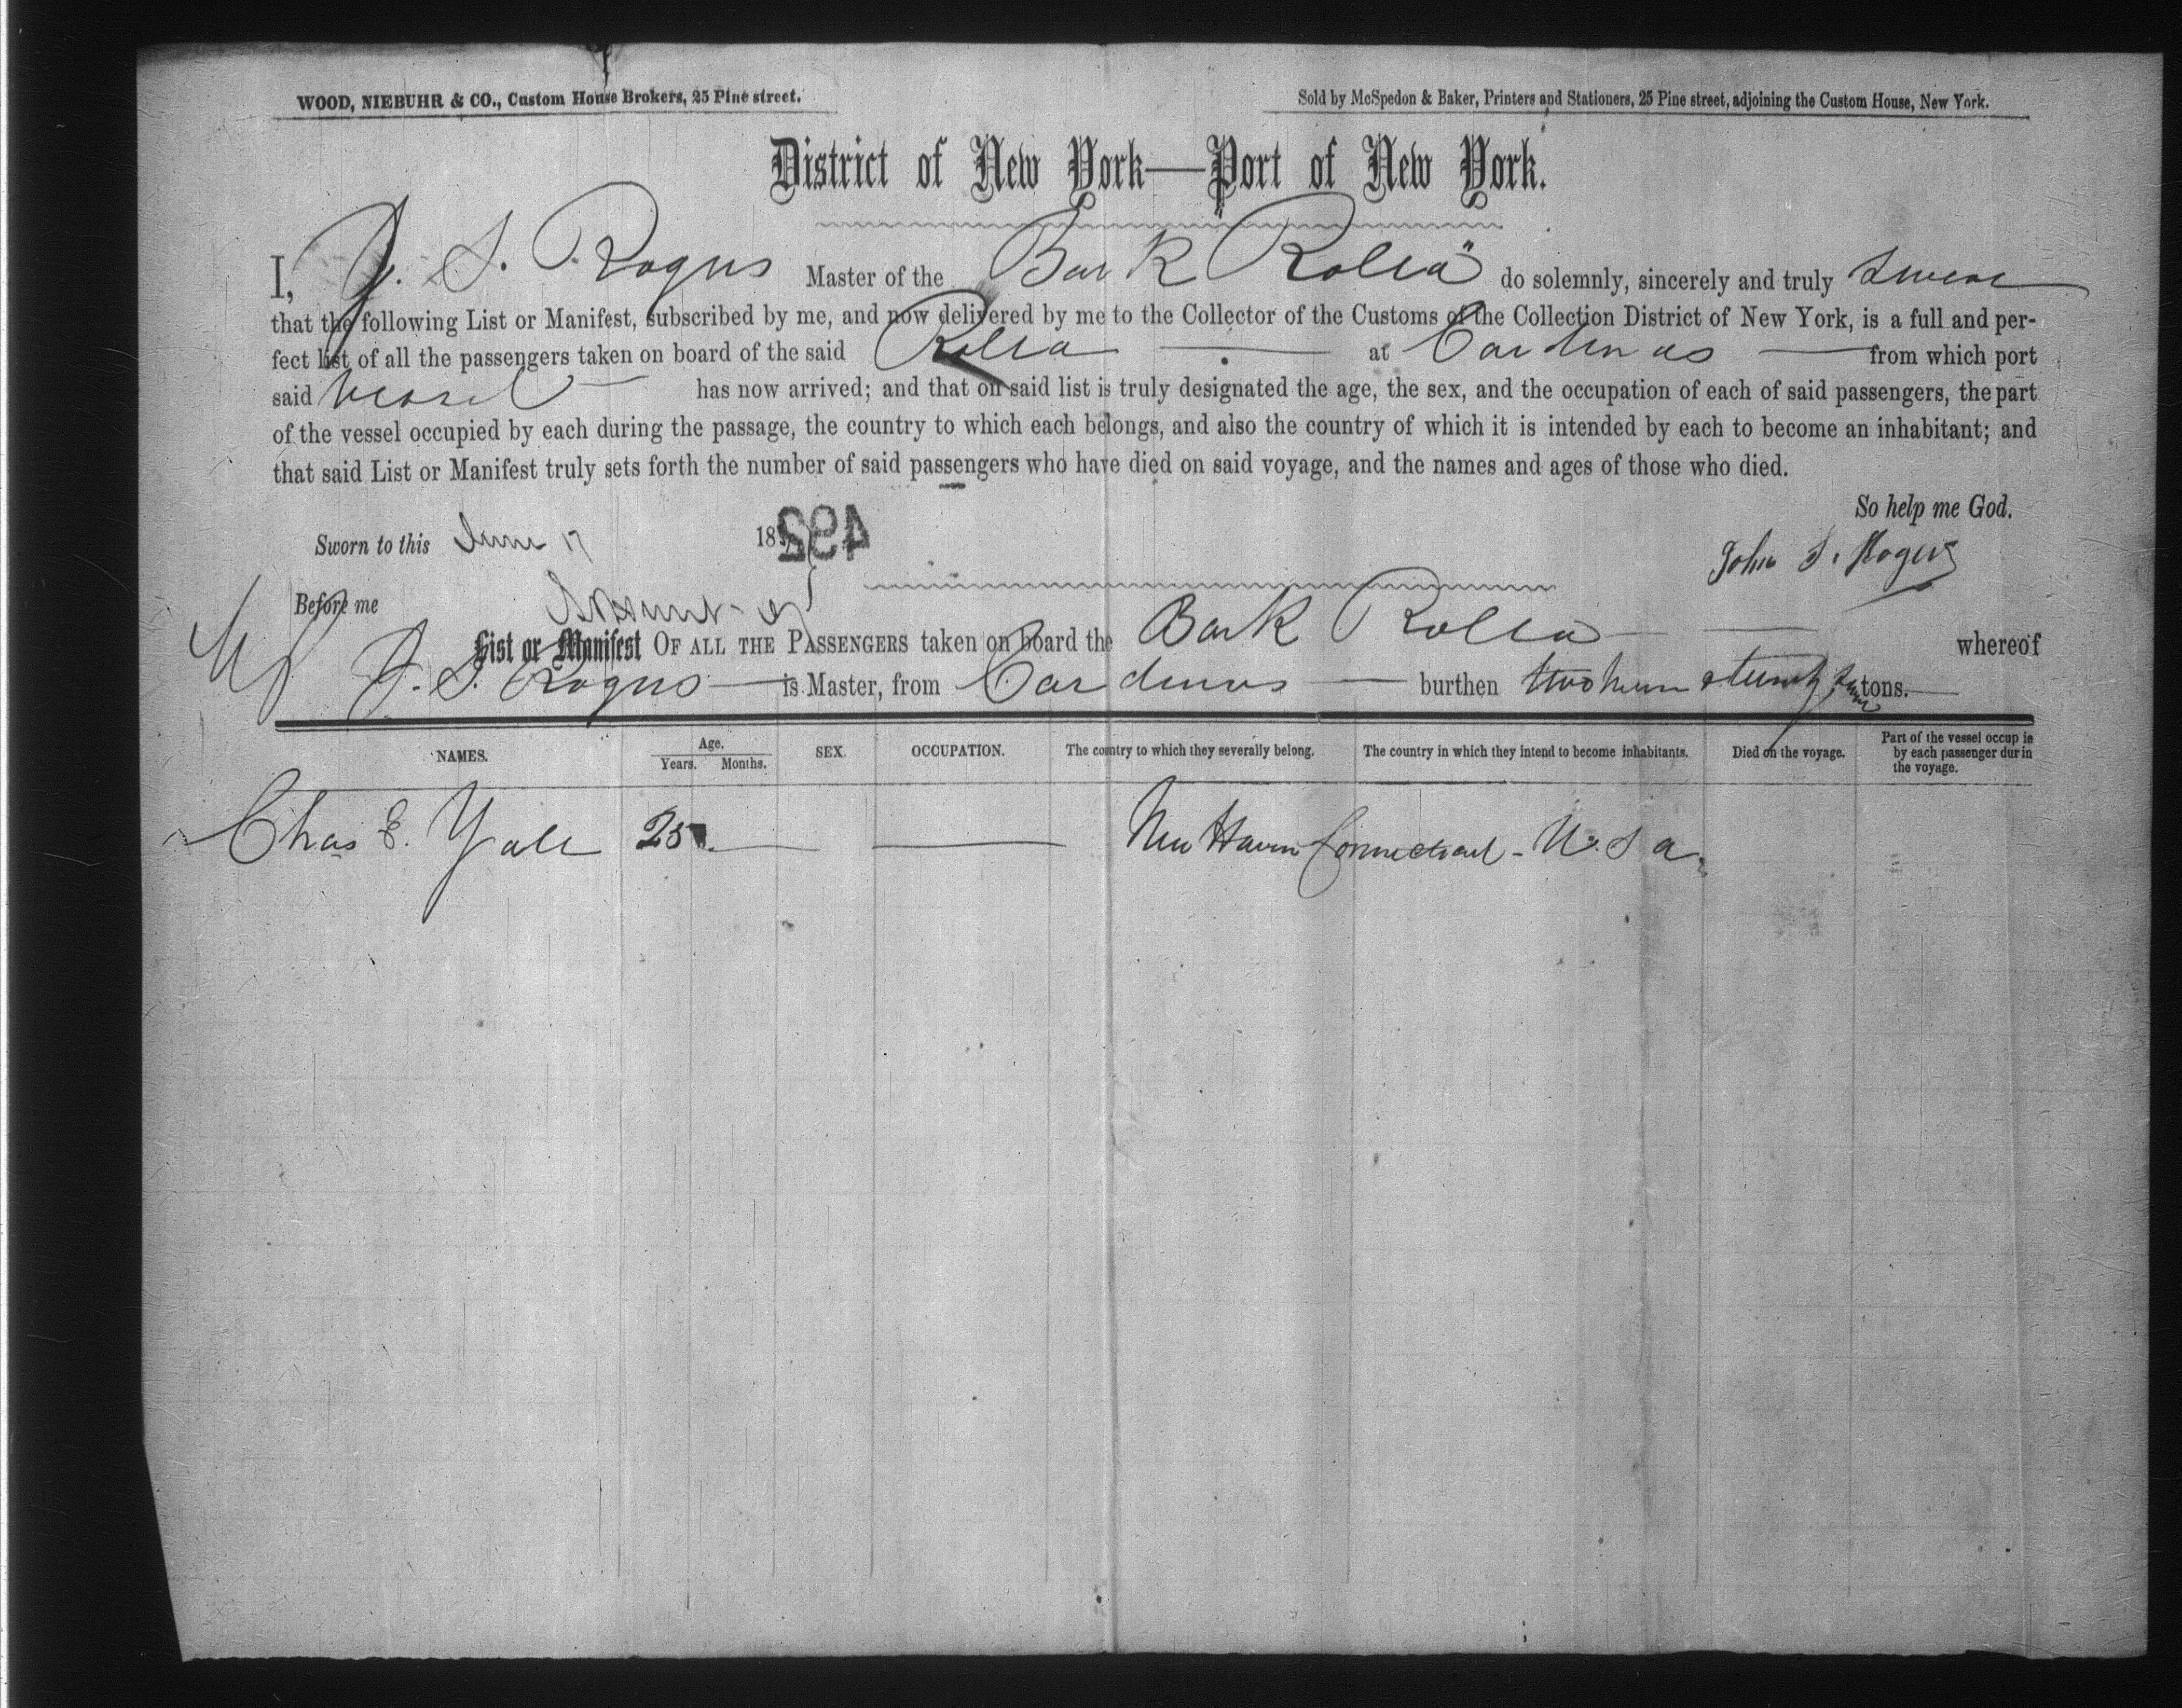 WOOD, NIEBUHR & CO., Custom House Brokers, 25 Pine street.
Sold by McSpedon & Baker, Printers and Stationers, 25 Pine street, adjoining the Custom House, New York.
District of New York—Port of New York.
I, J. S. Rogers Master of the Bark Rolla do solemnly, sincerely and truly swear
that the following List or Manifest, subscribed by me, and now delivered by me to the Collector of the Customs of the Collection District of New York, is a full and per-
fect list of all the passengers taken on board of the said Rolla at Cardenas from which port
said vessel has now arrived; and that on said list is truly designated the age, the sex, and the occupation of each of said passengers, the part
of the vessel occupied by each during the passage, the country to which each belongs, and also the country of which it is intended by each to become an inhabitant; and
that said List or Manifest truly sets forth the number of said passengers who have died on said voyage, and the names and ages of those who died.
So help me God.
Sworn to this June 17 18 492
John S. Rogers
Before me
List or Manifest OF ALL THE PASSENGERS taken on board the Bark Rolla whereof
J. S. Rogers is Master, from Cardenas burthen tons.
NAMES. Age. Years. Months. SEX. OCCUPATION. The country to which they severally belong. The country in which they intend to become inhabitants. Died on the voyage. Part of the vessel occup ie by each passenger dur in the voyage.
Chas E. Yale 25 New Haven Connecticut - U. S a.